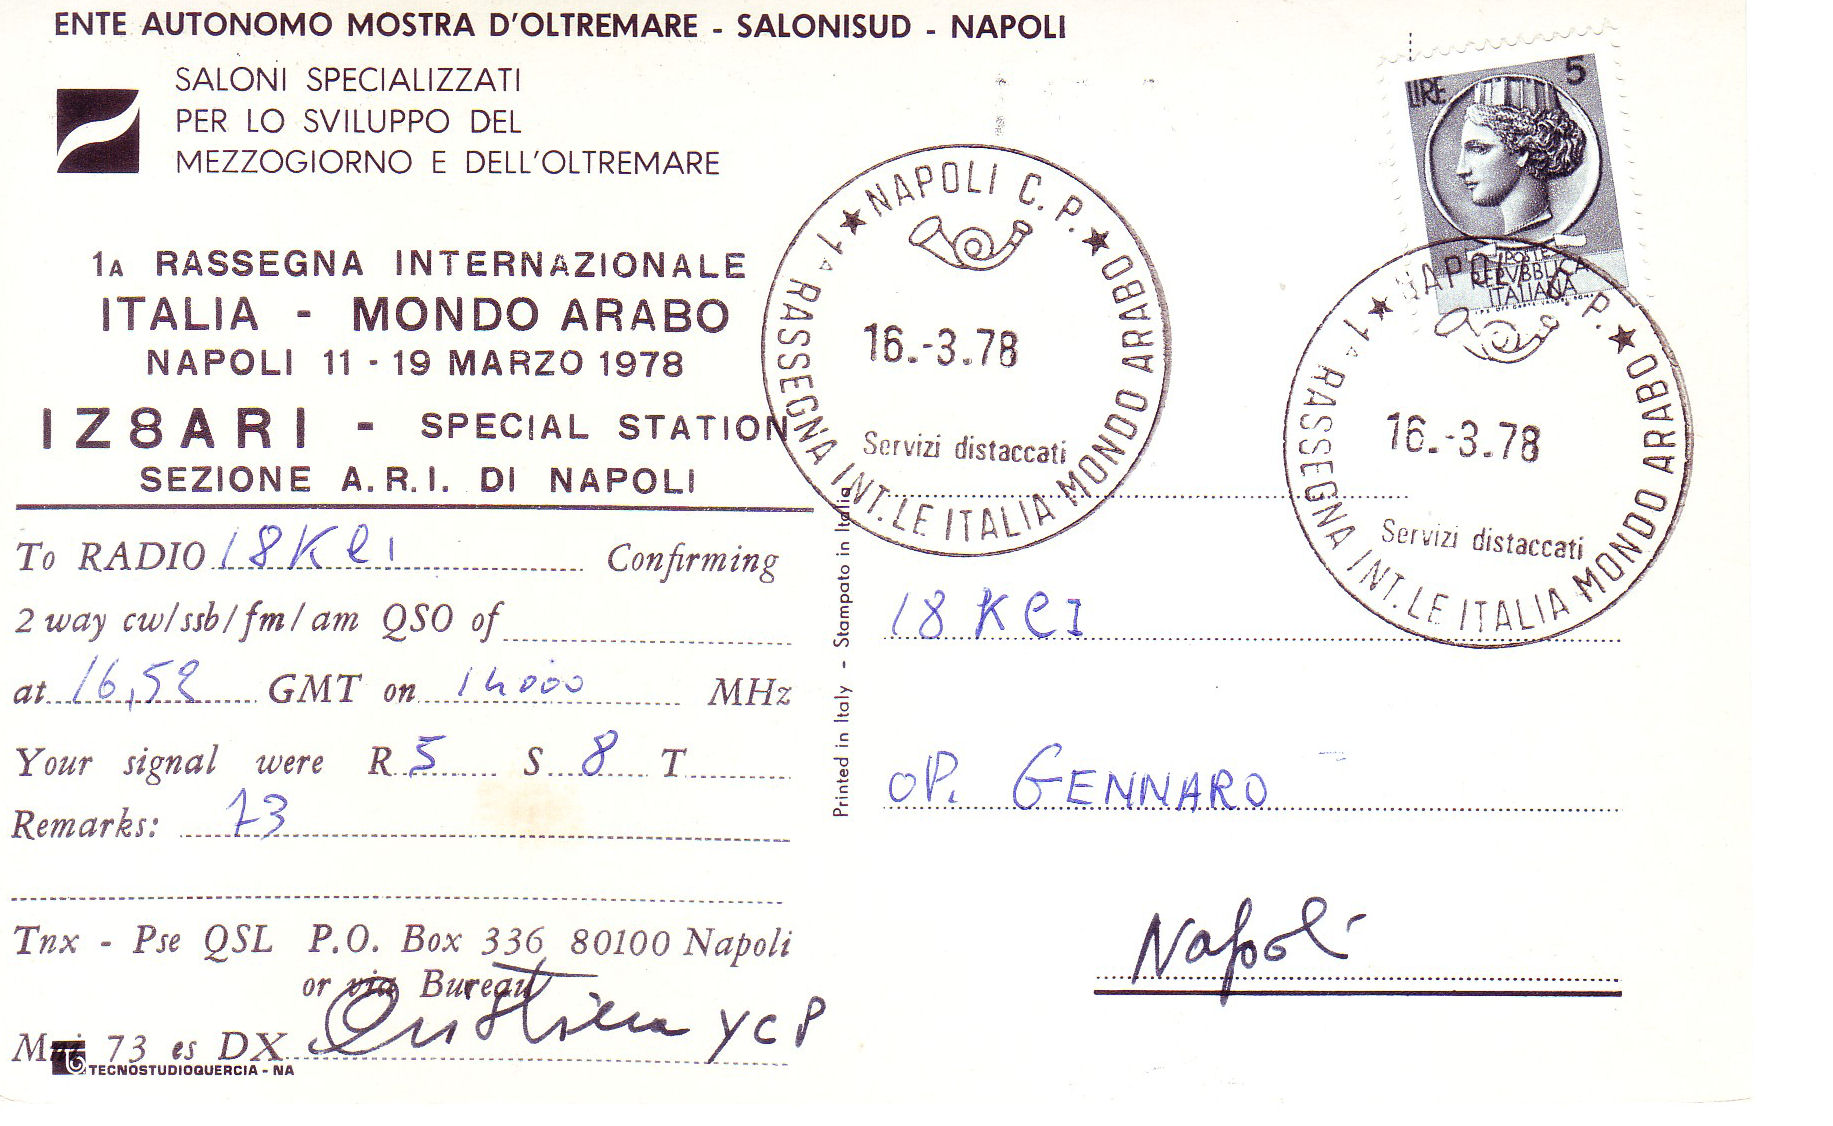 ENTE AUTONOMO MOSTRA D'OLTREMARE - SALONISUD - NAPOLI
SALONI SPECIALIZZATI
PER LO SVILUPPO DEL
MEZZOGIORNO E DELL'OLTREMARE
1A RASSEGNA INTERNAZIONALE
ITALIA - MONDO ARABO
NAPOLI 11 - 19 MARZO 1978
IZ8ARI - SPECIAL STATION
SEZIONE A.R.I. DI NAPOLI
To RADIO I8KCI Confirming
2 way cw/ssb/fm/am QSO of
at 16,52 GMT on 14000 MHz
Your signal were R 5 S 8 T
Remarks: 73
Tnx - Pse QSL P.O. Box 336 80100 Napoli
or via Bureau
Mni 73 es DX YCP
TECNOSTUDIOQUERCIA - NA
Printed in Italy - Stampato in Italia
★ NAPOLI C.P. ★
1A RASSEGNA INT.LE ITALIA MONDO ARABO
16.-3.78
Servizi distaccati
LIRE 5
POSTE
REPVBBLICA
ITALIANA
★ NAPOLI C.P. ★
1A RASSEGNA INT.LE ITALIA MONDO ARABO
16.-3.78
Servizi distaccati
I8KCI
OP. GENNARO
Napoli